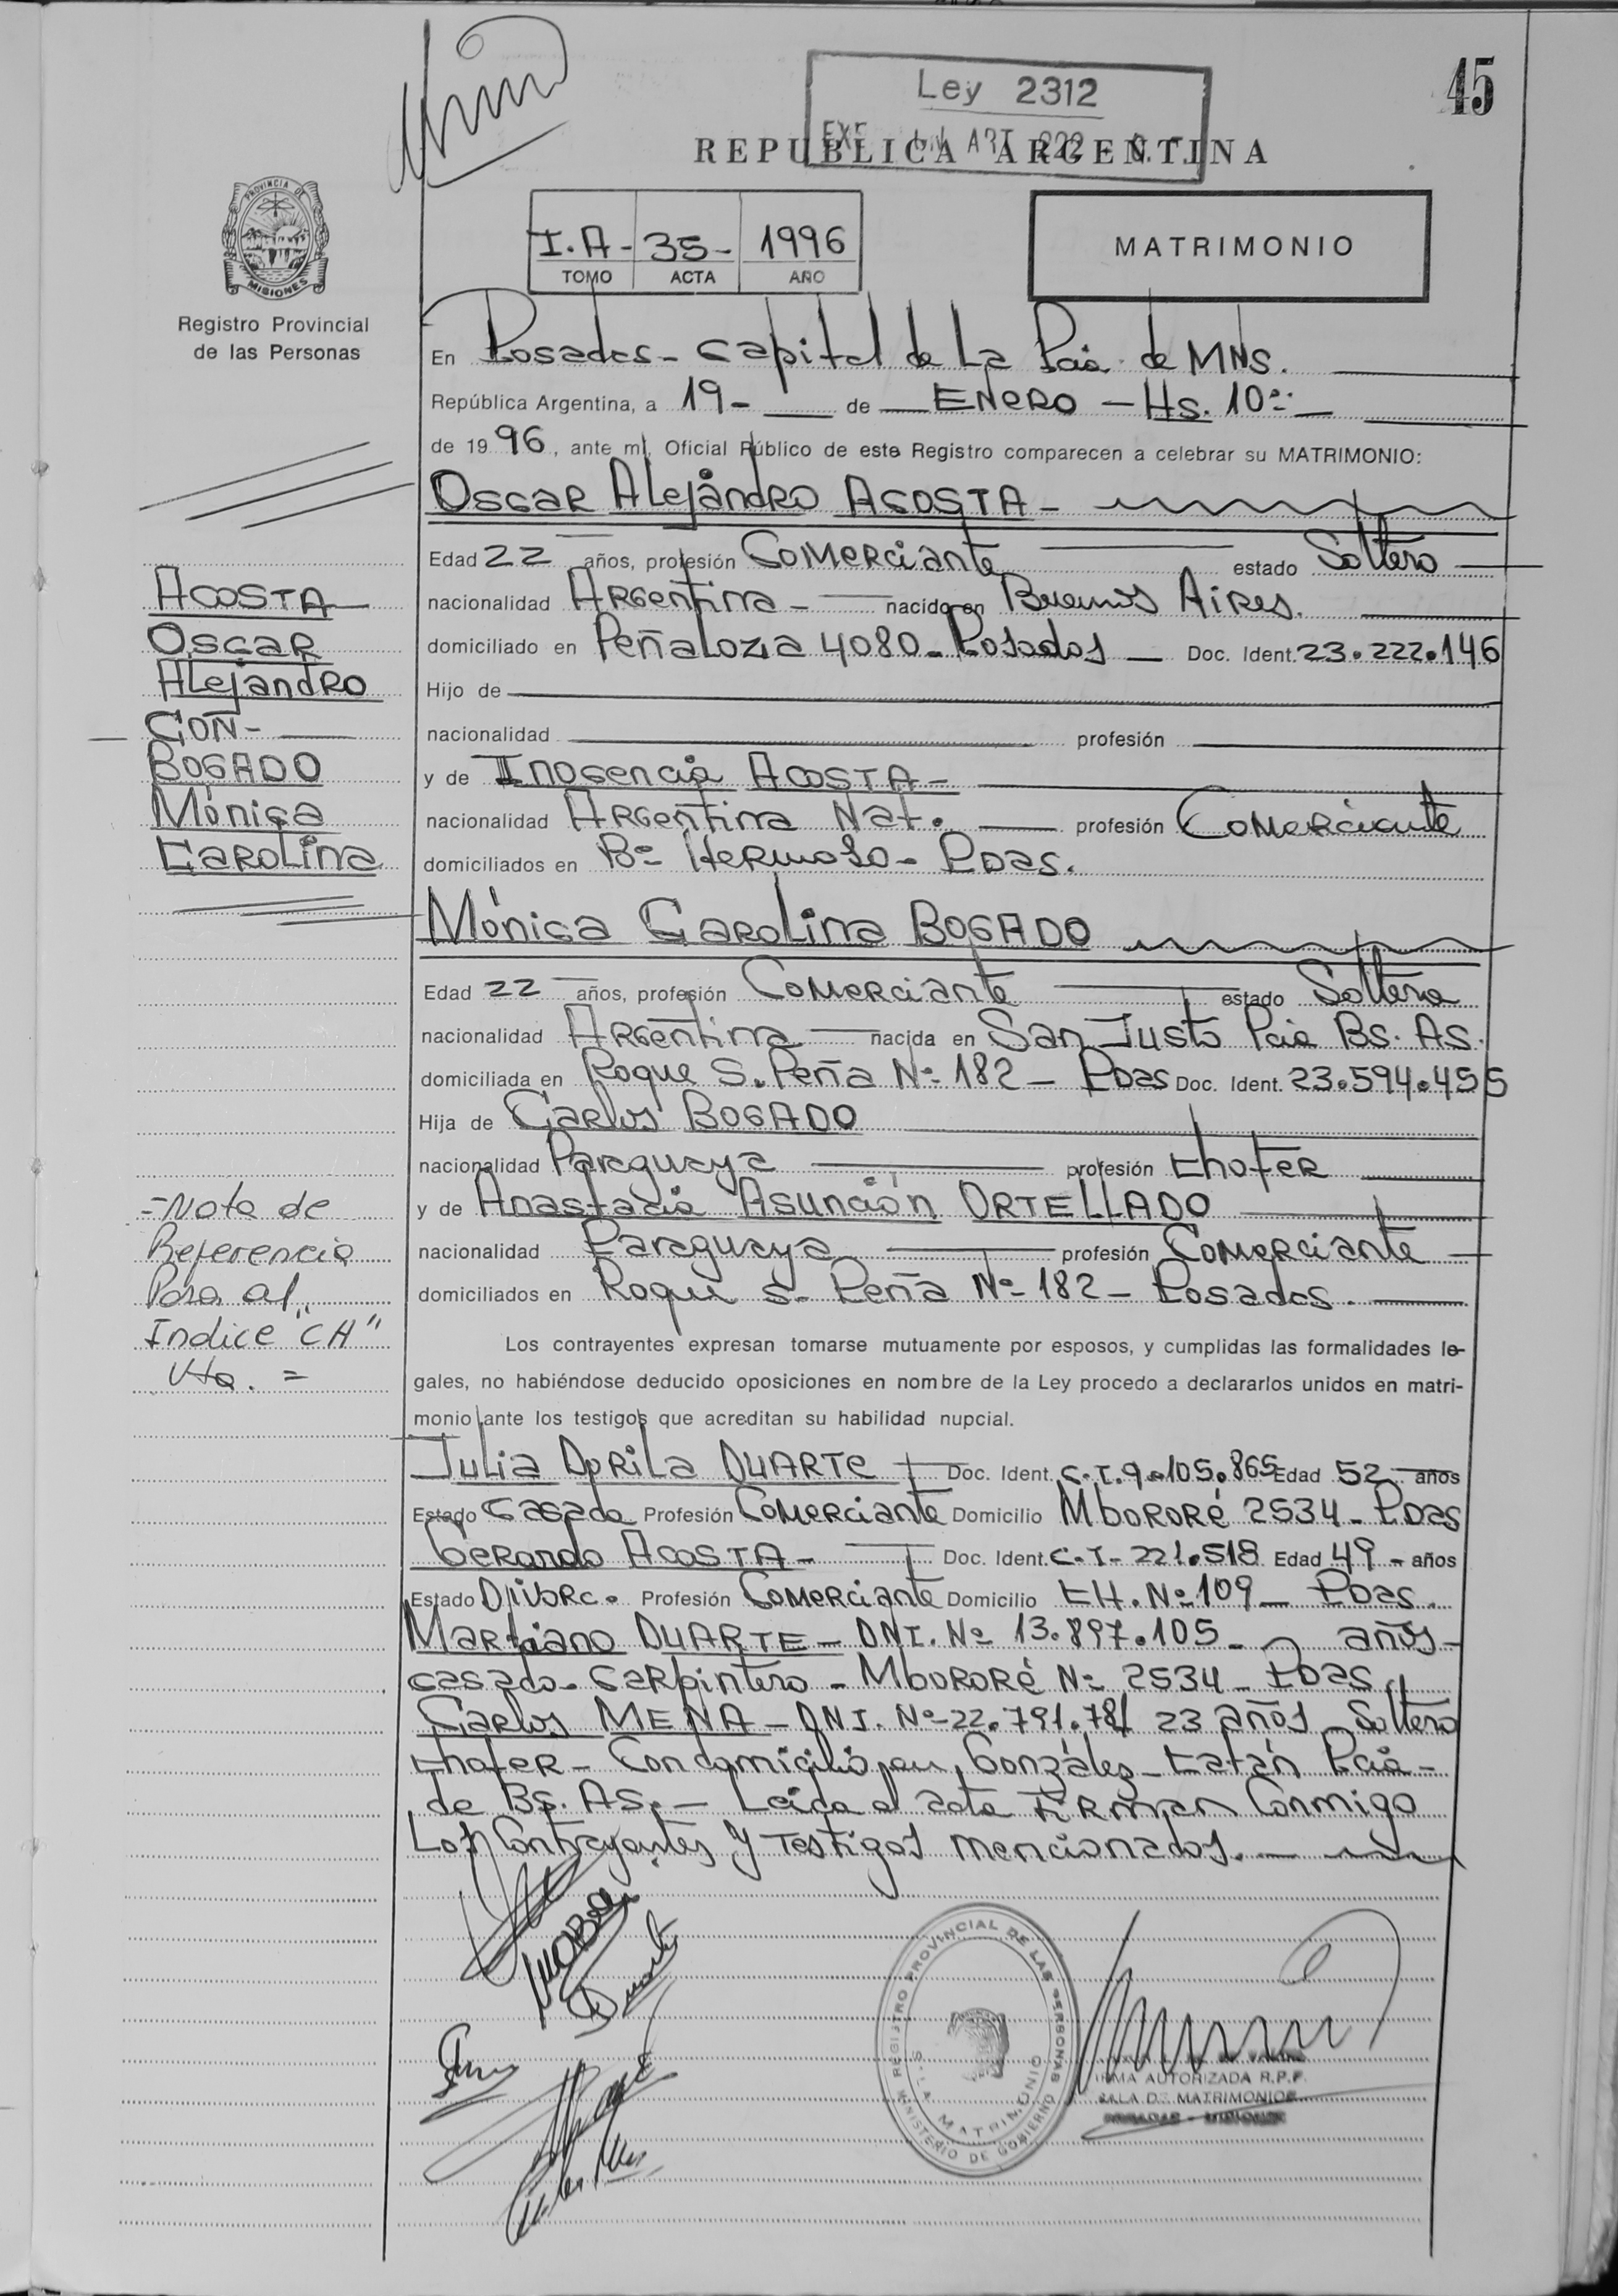 45
Ley 2312
ART. 222
REPUBLICA ARGENTINA
PROVINCIA DE
MISIONES
Registro Provincial
de las Personas
I.A - 35 - 1996
TOMO ACTA AÑO
MATRIMONIO
En Posadas - Capital de La Pcia. de MNS.
República Argentina, a 19 - de ENERO - Hs. 10
de 1996, ante mí, Oficial Público de este Registro comparecen a celebrar su MATRIMONIO:
OSCAR ALejANDRO ACOSTA -
Edad 22 años, profesión COMERCiante estado Soltero
nacionalidad ARGentina - nacido en Buenos AiRes.
domiciliado en Peñaloza 4080 - Posadas - Doc. Ident. 23.222.146
Hijo de
nacionalidad profesión
y de Inocencia ACOSTA -
nacionalidad ARGentina Nat. profesión COMERCiante
domiciliados en Bº Hermoso - Pdas.
Mónica Carolina BOGADO
Edad 22 años, profesión COMERCiante estado Soltera
nacionalidad ARGentina nacida en San Justo Pcia Bs. As.
domiciliada en Roque S. Peña Nº 182 - Pdas Doc. Ident. 23.594.455
Hija de Carlos BOGADO
nacionalidad Paraguaya profesión ChofeR
y de Anastacia Asunción ORTELLADO
nacionalidad Paraguaya profesión COMERCiante
domiciliados en Roque S. Peña Nº 182 - Posadas.
Los contrayentes expresan tomarse mutuamente por esposos, y cumplidas las formalidades le-
gales, no habiéndose deducido oposiciones en nombre de la Ley procedo a declararlos unidos en matri-
monio ante los testigos que acreditan su habilidad nupcial.
Julia DoRiLa DUARTE Doc. Ident. C.I. 9.105.865 Edad 52 años
Estado Casada Profesión COMERCiante Domicilio Mbororé 2534 - Pdas
GeRardo ACOSTA - Doc. Ident. C.I - 221.518 Edad 49 - años
Estado Divorc. Profesión COMERCiante Domicilio CH. Nº 109 - Pdas.
Marciano DUARTE - DNI. Nº 13.897.105 - años -
casado - Carpintero - Mbororé Nº 2534 - Pdas.
Carlos MENA - DNI. Nº 22.791.781 23 años Soltero
Chofer - Con domicilio en González - Catán Pcia -
de Bs. As. - Leida el acta FiRman Conmigo
Los Contrayentes y Testigos mencionados. -
ACOSTA
OSCAR
ALejandRO
CON -
BOGADO
Mónica
CaroLina
= Nota de
Referencia
Para al
Indice "CH"
Vta. =
Duarte
REGISTRO PROVINCIAL DE LAS PERSONAS
MINISTERIO DE GOBIERNO
SALA MATRIMONIO
FIRMA AUTORIZADA R.P.P.
SALA DE MATRIMONIOS
POSADAS - MISIONES